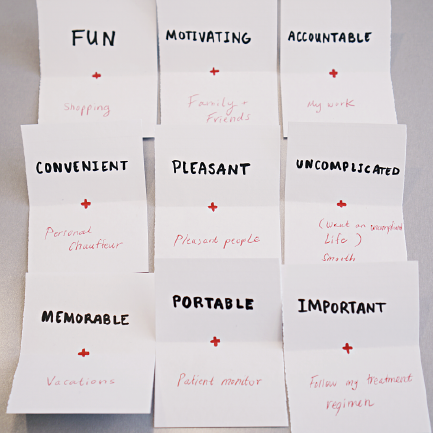 FUN
+
Shopping
MOTIVATING
+
Family +
Friends
ACCOUNTABLE
+
My work
CONVENIENT
+
Personal
Chauffeur
PLEASANT
+
Pleasant people
UNCOMPLICATED
+
(Want an uncomplicated
Life )
Smooth
MEMORABLE
+
Vacations
PORTABLE
+
Patient monitor
IMPORTANT
+
Follow my treatment
regimen